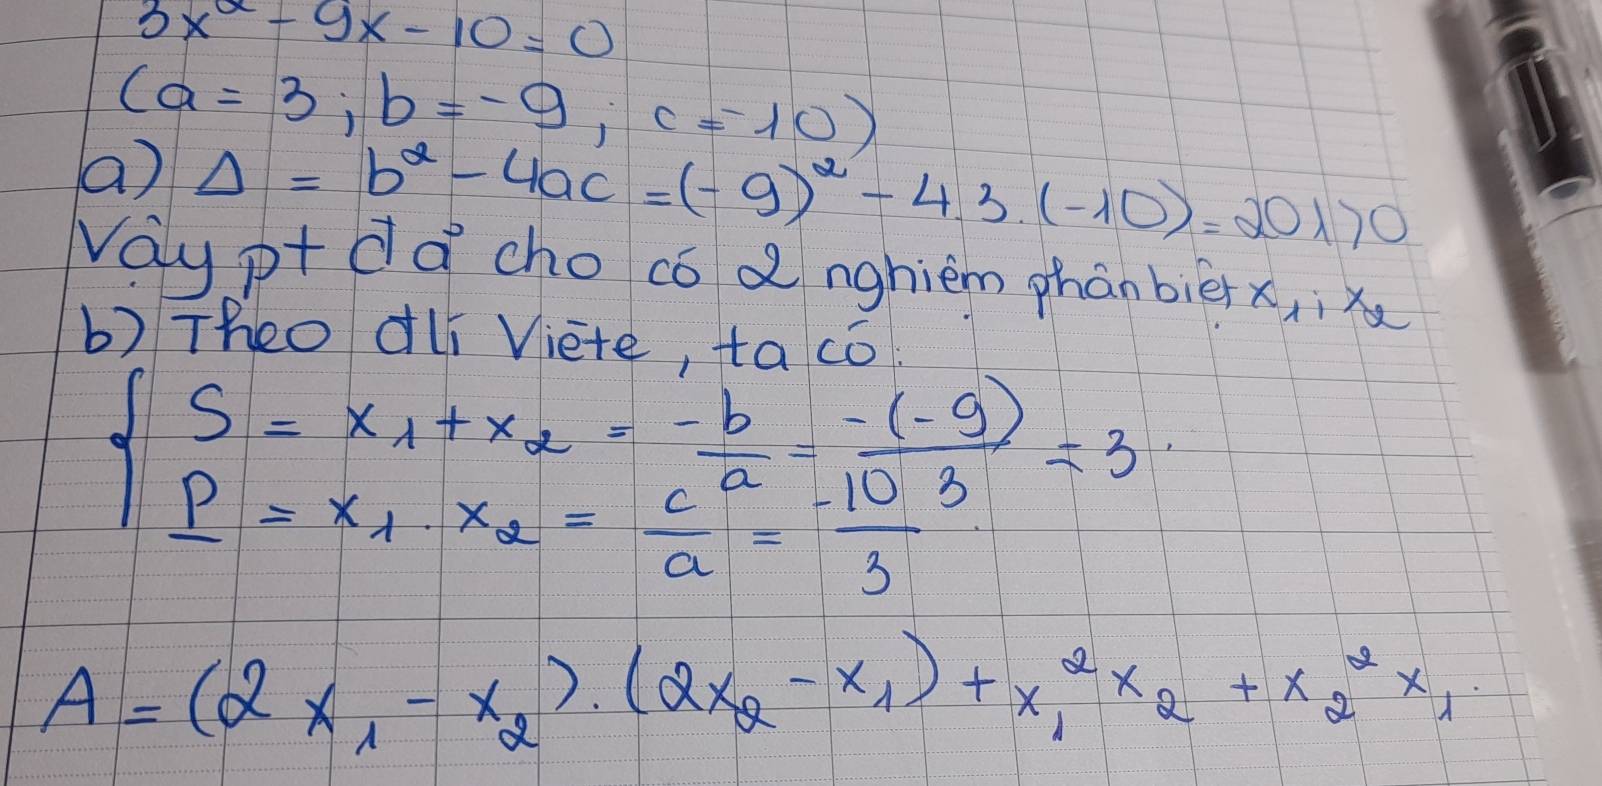 3x² - 9x - 10 = 0
(a = 3; b = -9; c = -10)
a) Δ = b² - 4ac = (-9)² - 4.3.(-10) = 201 > 0
Vậy pt đã cho có 2 nghiệm phân biệt x₁; x₂
b) Theo đlí Viète, ta có:
{ S = x₁ + x₂ = -b/a = -(-9)/3 = 3.
P = x₁ . x₂ = c/a = -10/3.
A = (2x₁ - x₂).(2x₂ - x₁) + x₁²x₂ + x₂²x₁.